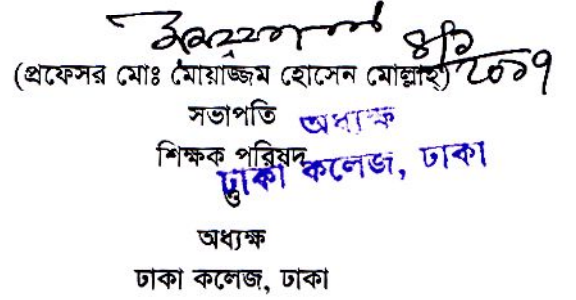 (প্রফেসর মোঃ মোয়াজ্জেম হোসেন মোল্লাহ্)
সভাপতি
অধ্যক্ষ
শিক্ষক পরিষদ
ঢাকা কলেজ, ঢাকা
ও
অধ্যক্ষ
ঢাকা কলেজ, ঢাকা